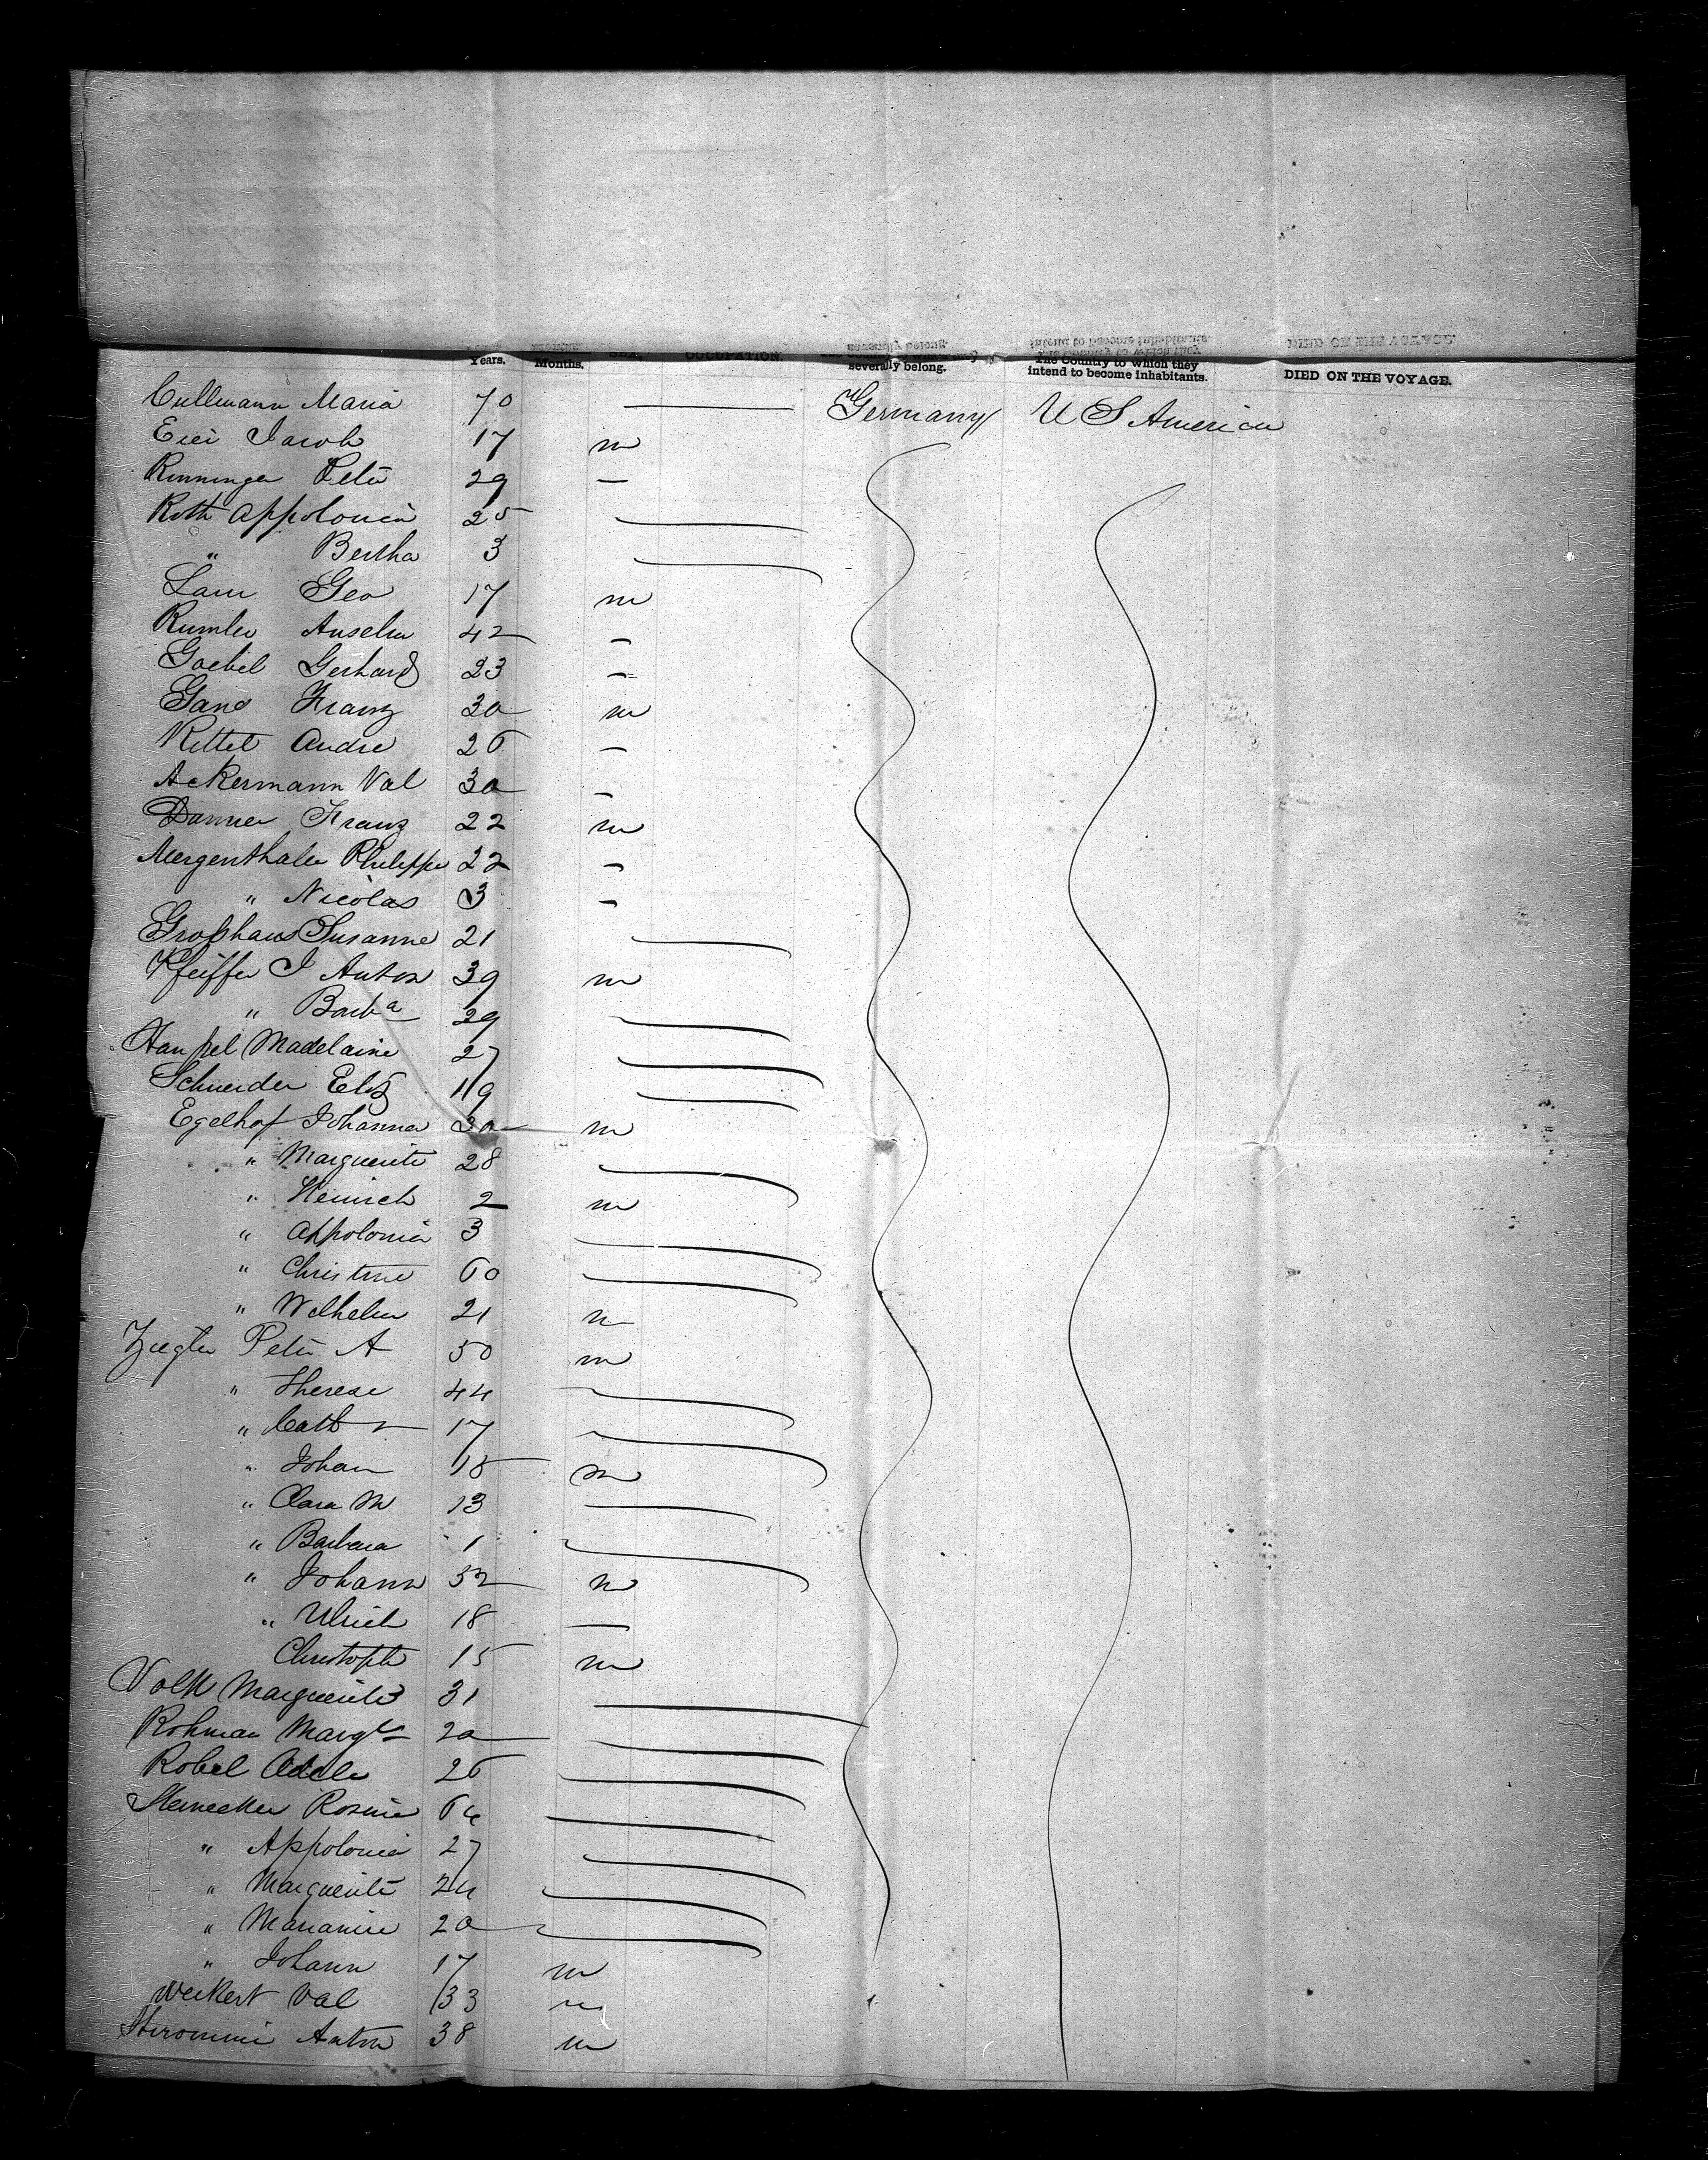 Years. Months. SEX. OCCUPATION. severally belong. The Country to which they intend to become inhabitants. DIED ON THE VOYAGE.
Cullmann Maria 70 — Germany U S America
Eici Jacob 17 m
Renninger Peter 29 —
Roth Appolonia 25
" Bertha 3
Lam Geo 17 m
Rumler Anselm 42 —
Goebel Gerhard 23 —
Gans Franz 30 m
Kittel Andre 26 —
Ackermann Val 30 —
Danner Franz 22 m
Mergenthaler Philippe 22 —
" Nicolas 3 —
Großhaus Susanne 21
Pfeiffer J Anton 39 m
" Barba 29
Hankel Madelaine 27
Schneider Elis 19
Egelhof Johanna 30 m
" Marguerite 28
" Heinrich 2 m
" Appolonia 3
" Christine 60
" Wilhelm 21 m
Ziegler Peter A 50 m
" Therese 44
" Cath 17
" Johan 15 m
" Clara M 13
" Barbara 1
" Johann 32 m
" Ulrich 18 —
Christoph 15 m
Volk Marguerite 31
Rohman Margte 20
Robel Adele 26
Rosine 64
" Appolonia 27
" Marguerite 24
" Marianne 20
" Johann 17 m
Weikert Val 33 m
Anton 38 m